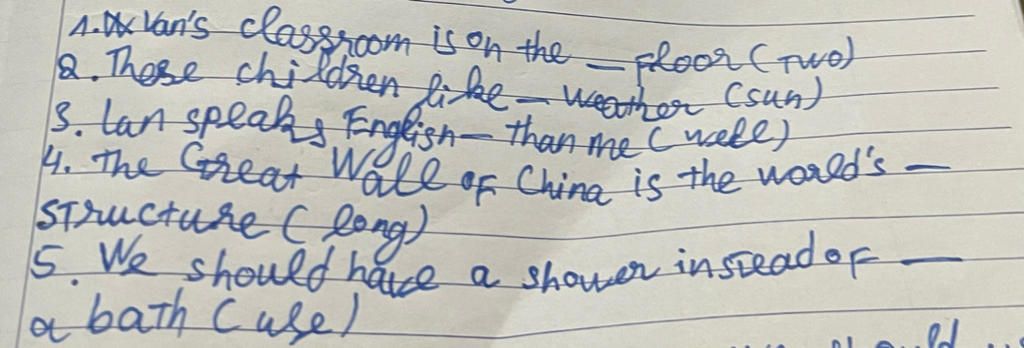 1. Van's classroom is on the _ floor (two)
2. Those children like _ weather (sun)
3. Lan speaks English _ than me (well)
4. The Great Wall of China is the world's _
structure (long)
5. We should have a shower instead of _
a bath (use)